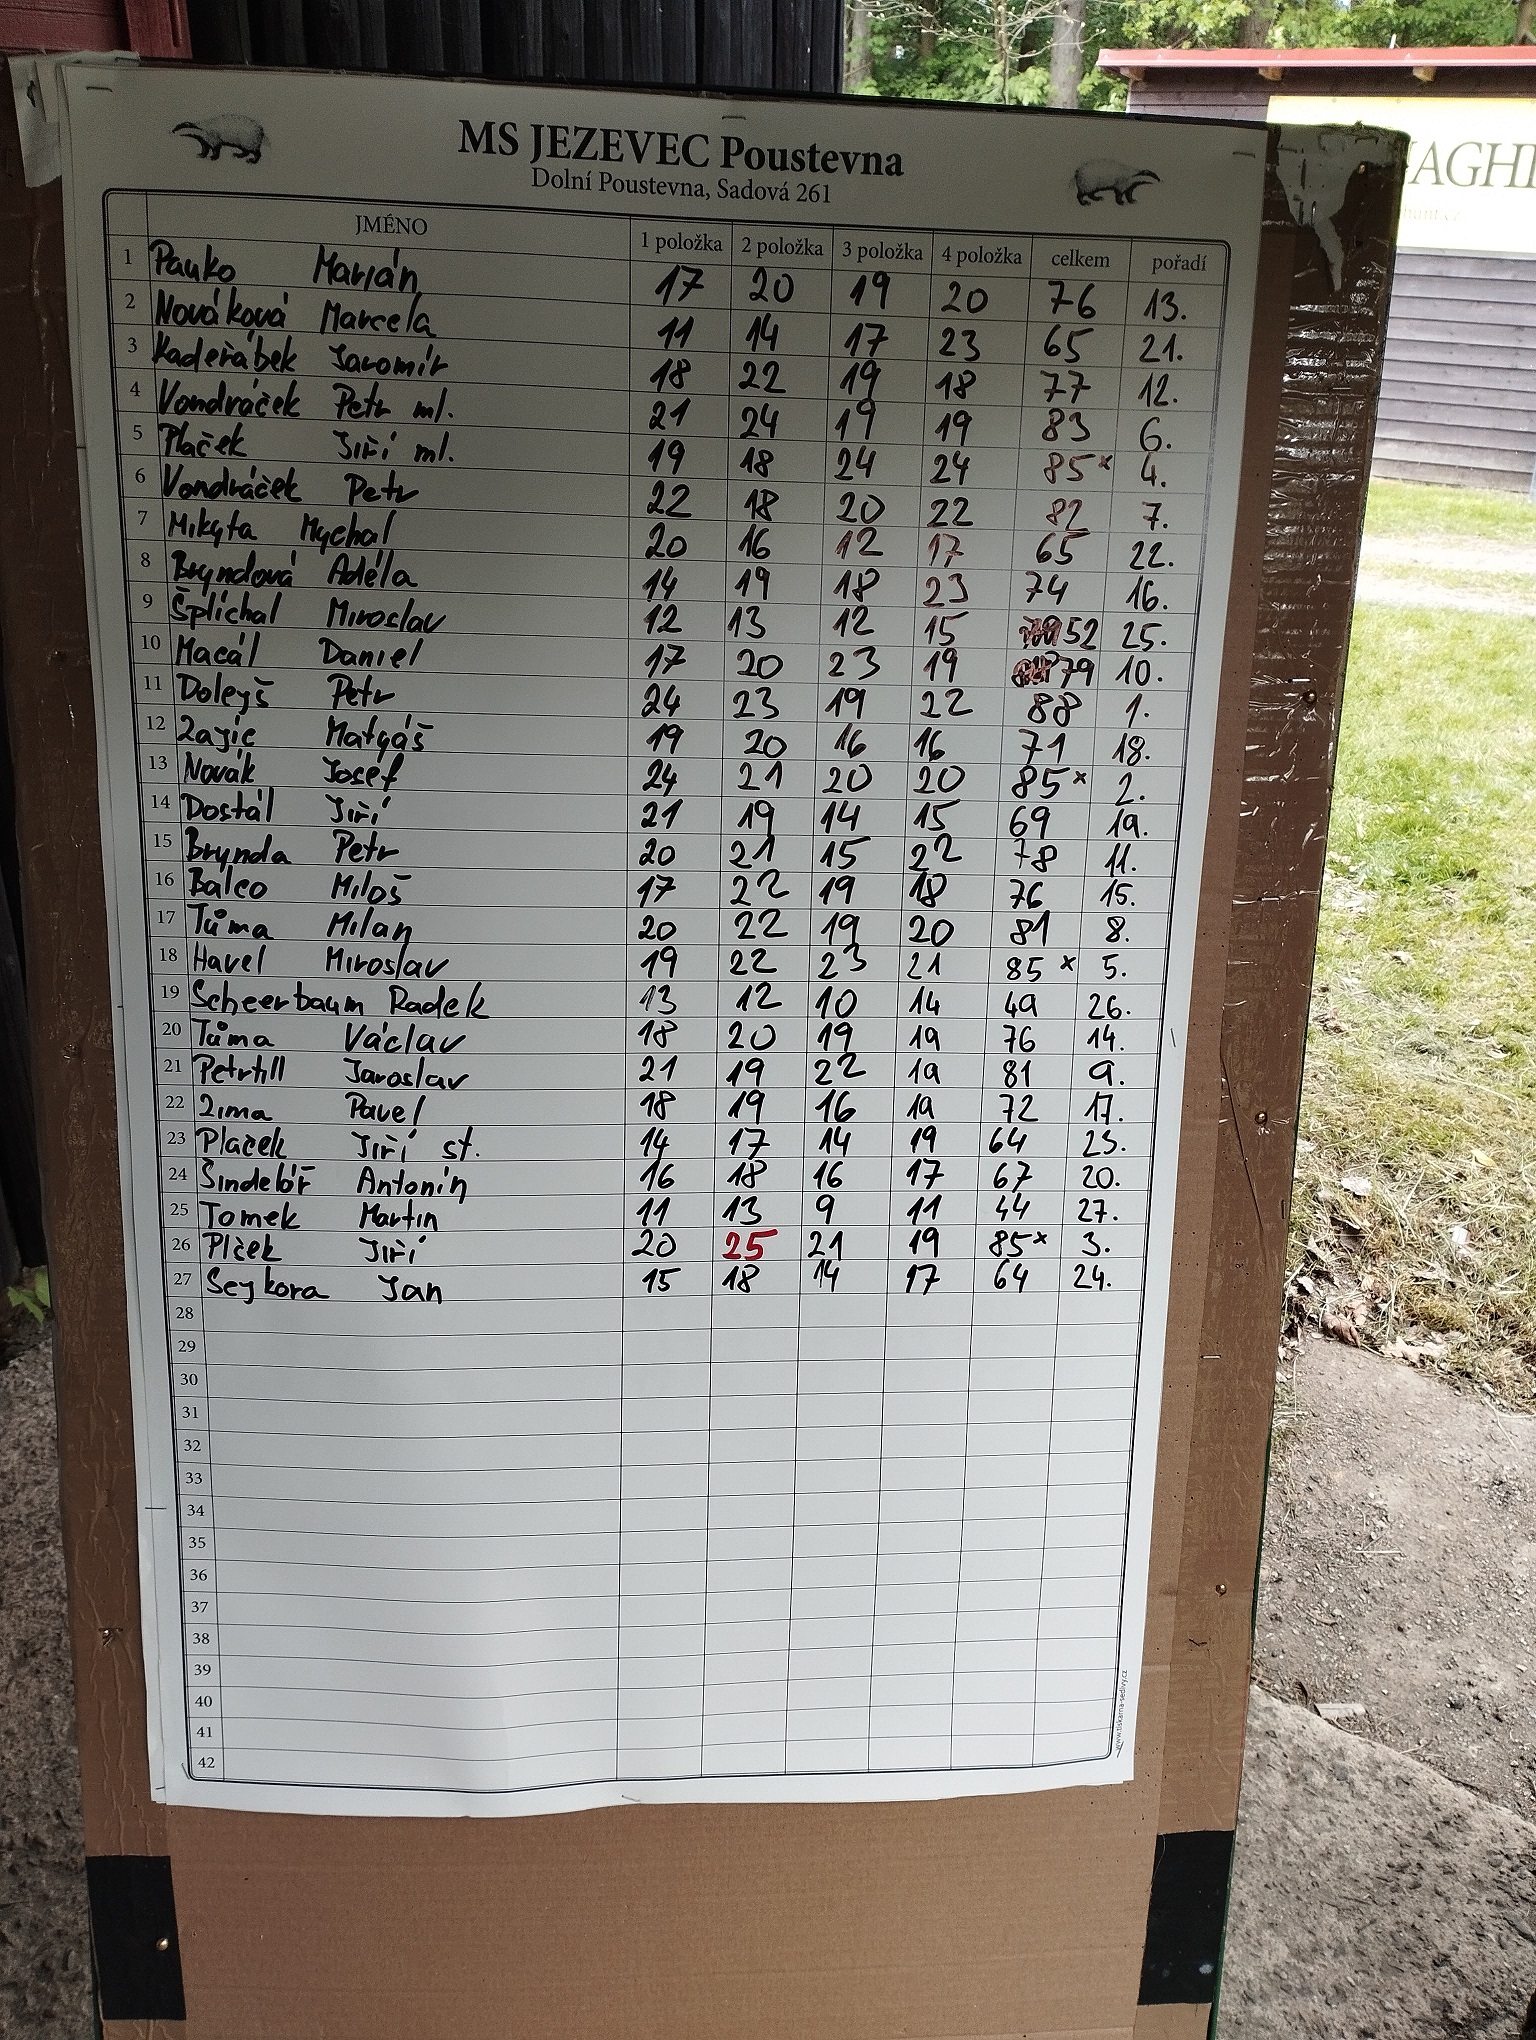 MS JEZEVEC Poustevna
Dolní Poustevna, Sadová 261
JMÉNO 1 položka 2 položka 3 položka 4 položka celkem pořadí
1 Pauko Marián 17 20 19 20 76 13.
2 Nováková Marcela 11 14 17 23 65 21.
3 Kadeřábek Jaromír 18 22 19 18 77 12.
4 Vondráček Petr ml. 21 24 19 19 83 6.
5 Plaček Jiří ml. 19 18 24 24 85 x 4.
6 Vondráček Petr 22 18 20 22 82 7.
7 Mikyta Mychal 20 16 12 17 65 22.
8 Bryndová Adéla 14 19 18 23 74 16.
9 Šplíchal Miroslav 12 13 12 15 52 25.
10 Macál Daniel 17 20 23 19 79 10.
11 Dolejš Petr 24 23 19 22 88 1.
12 Zajíc Matyáš 19 20 16 16 71 18.
13 Novák Josef 24 21 20 20 85 x 2.
14 Dostál Jiří 21 19 14 15 69 19.
15 Brynda Petr 20 21 15 22 78 11.
16 Balco Miloš 17 22 19 18 76 15.
17 Tůma Milan 20 22 19 20 81 8.
18 Havel Miroslav 19 22 23 21 85 x 5.
19 Scheerbaum Radek 13 12 10 14 49 26.
20 Tůma Václav 18 20 19 19 76 14.
21 Petrtill Jaroslav 21 19 22 19 81 9.
22 Zima Pavel 18 19 16 19 72 17.
23 Plaček Jiří st. 14 17 14 19 64 23.
24 Šindelář Antonín 16 18 16 17 67 20.
25 Tomek Martin 11 13 9 11 44 27.
26 Plček Jiří 20 25 21 19 85 x 3.
27 Seykora Jan 15 18 14 17 64 24.
28
29
30
31
32
33
34
35
36
37
38
39
40
41
42
www.tiskarna-sedlivy.cz